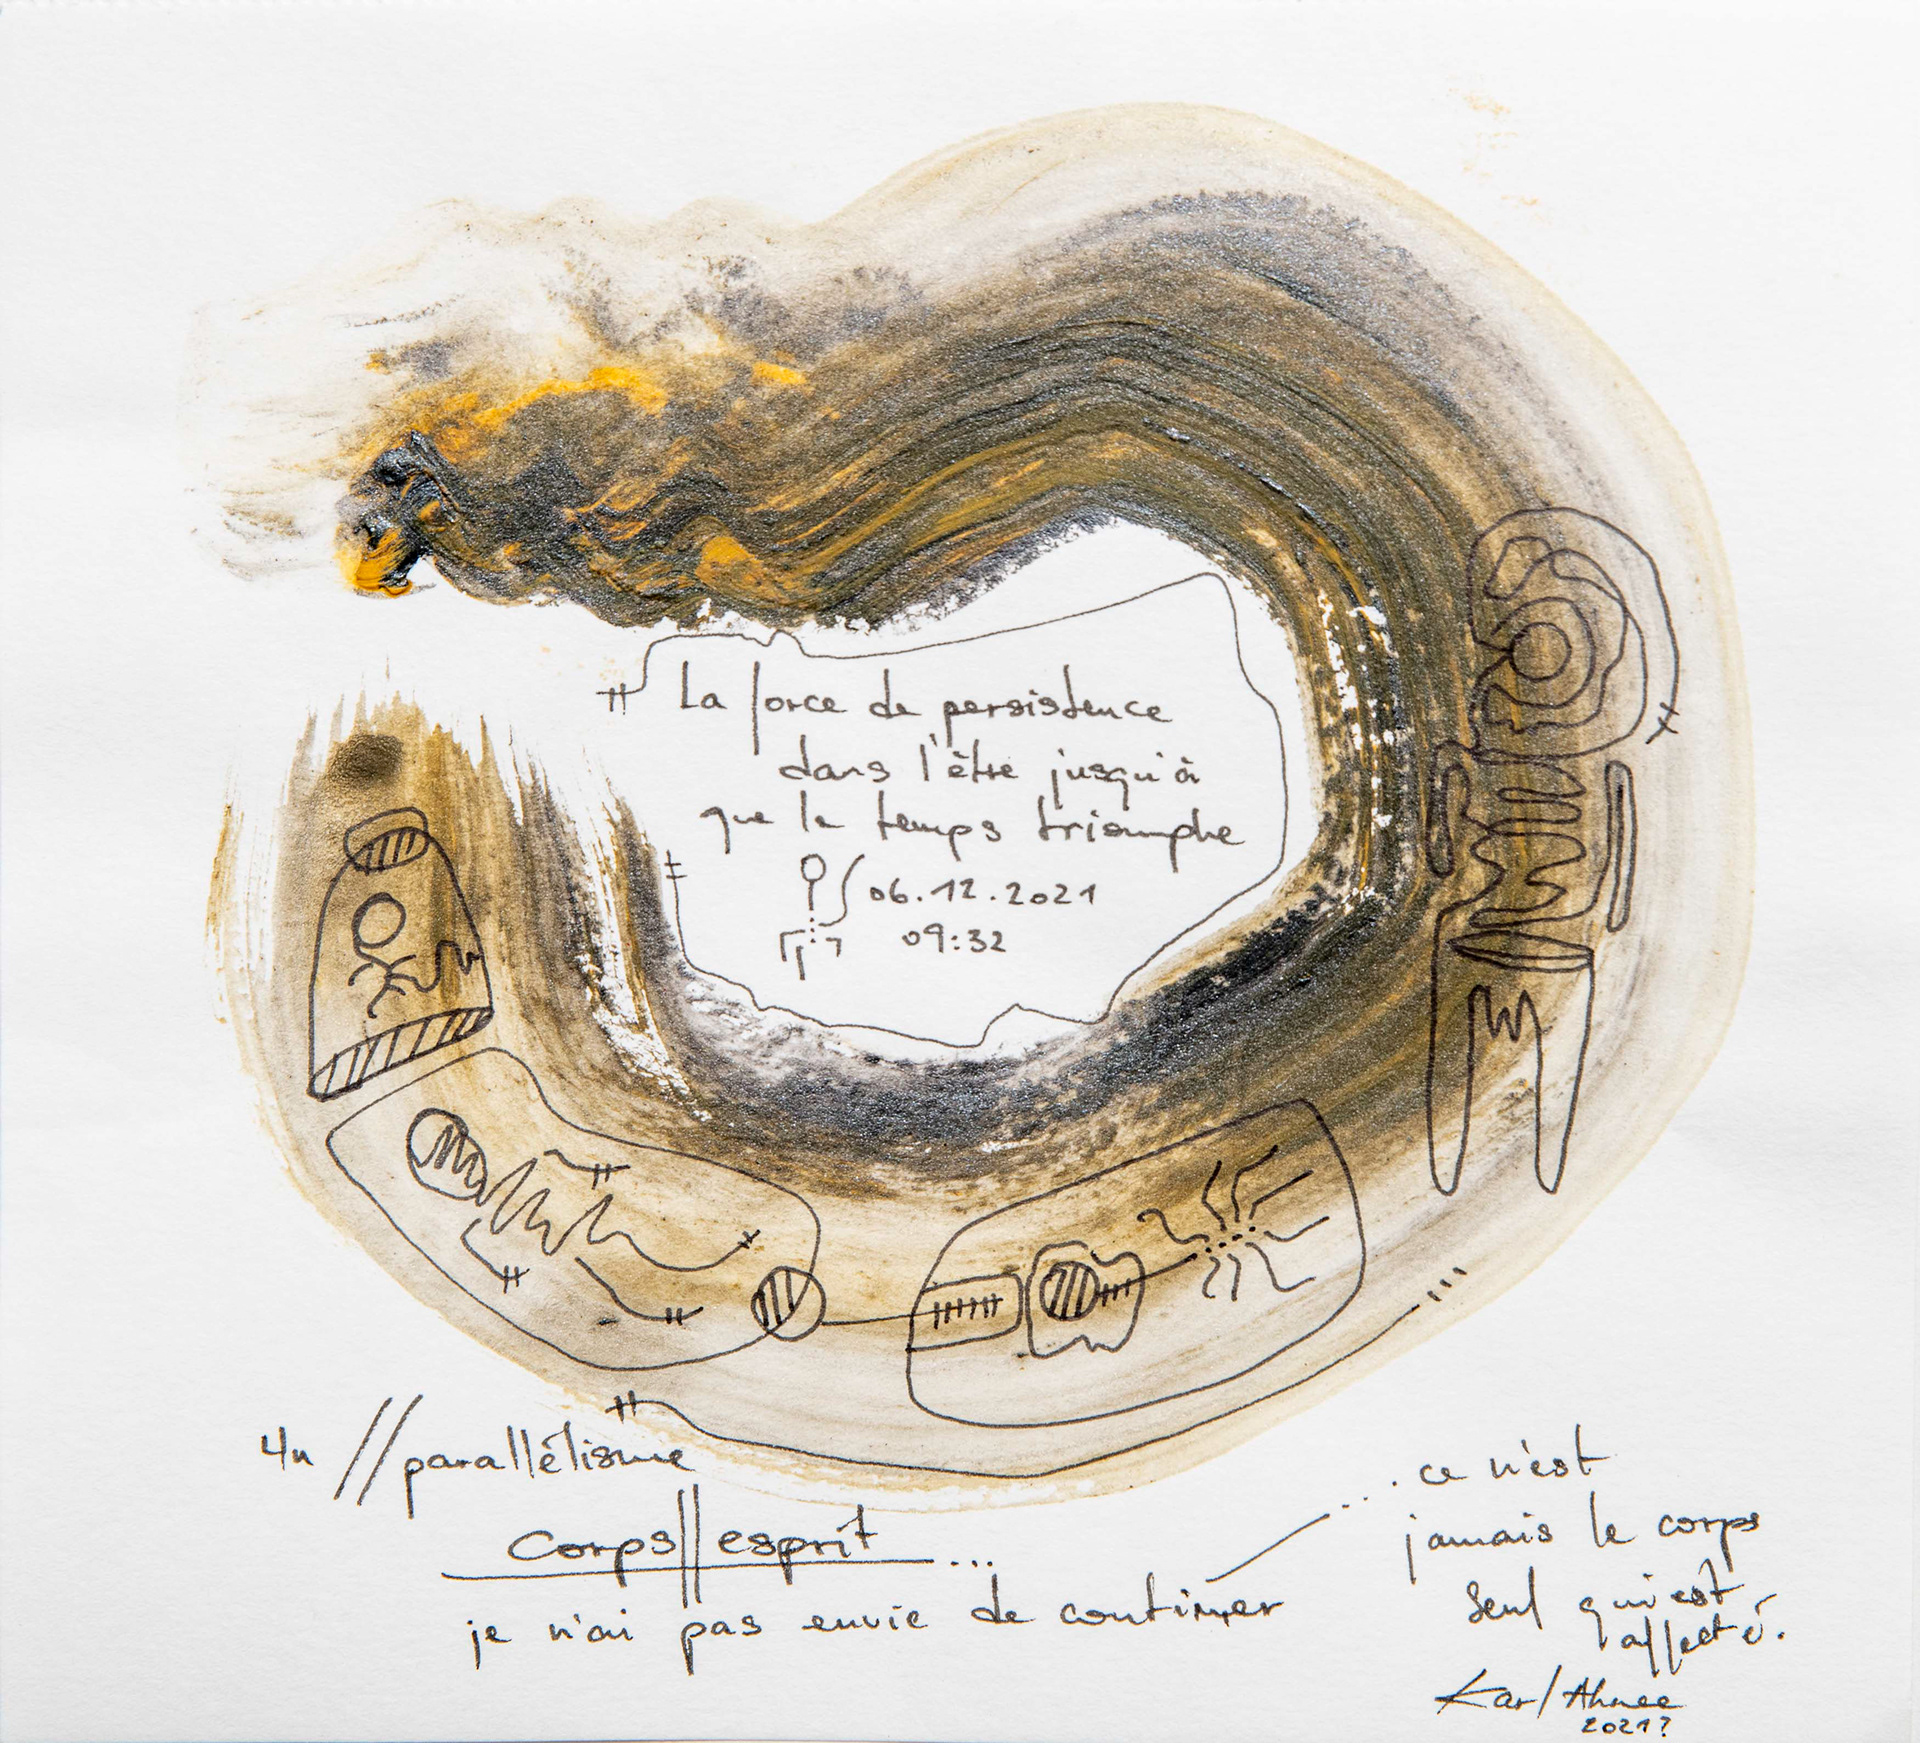 La force de persistence
dans l'être jusqu'à
que le temps triomphe
06.12.2021
09:32
4n // parallélisme
Corps || esprit ...
je n'ai pas envie de continuer
... ce n'est
jamais le corps
seul qui est
affecté.
Karl Ahnee
2021?